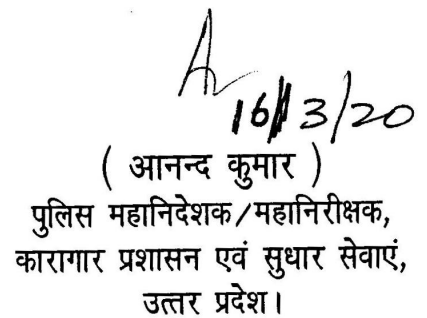 16/3/20
( आनन्द कुमार )
पुलिस महानिदेशक/महानिरीक्षक,
कारागार प्रशासन एवं सुधार सेवाएं,
उत्तर प्रदेश।